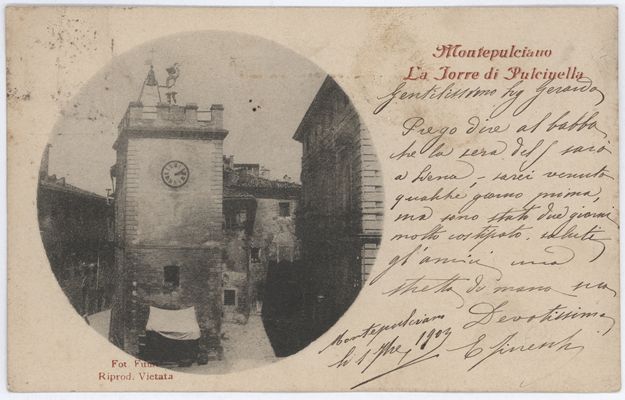 Montepulciano
La Torre di Pulcinella
Gentilissimo Sig Gerardo
Prego dire al babbo
che la sera del 5 sarò
a Siena, - sarei venuto
qualche giorno prima,
ma sono stato due giorni
molto costipato. saluti
gl'amici una
stretta di mano suo
Devotissimo
Montepulciano
li 1 1903
Fot.
Riprod. Vietata